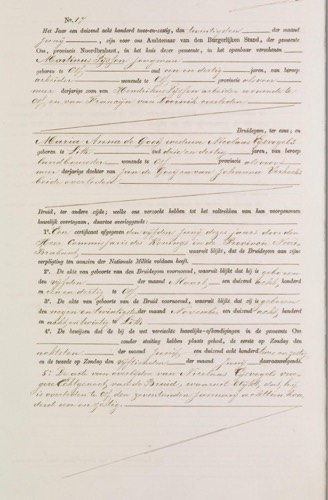 No. 17
Het Jaar een duizend acht honderd twee-en-zestig, den twintigsten der maand
Junij, zijn voor ons Ambtenaar van den Burgerlijken Stand, der gemeente
Oss, provincie Noordbrabant, in het huis dezer gemeente, in het openbaar verschenen
Martinus Sijssen, jongman
geboren te Oss, oud een en dertig jaren, van beroep
arbeider wonende te Oss provincie alvoren
meer derjarige zoon van Hendrikus Sijssen arbeider wonende te
Oss en van Francijn van overleden
Bruidegom, ter eene; en
Maria Anna de Gooij weduwe Nicolaas Tijsvogels
geboren te Lith oud drie en dertig jaren, van beroep
landbouwster wonende te Oss provincie alvoren
meer derjarige dochter van Jan de en van Johanna
beide overleden
Bruid, ter andere zijde; welke ons verzocht hebben tot het voltrekken van hun voorgenomen
huwelijk overtegaan, daartoe overleggende:
1.° Een certificaat afgegeven den vijfden Junij dezes jaars door den
Heer Commissaris des Konings in de Provincie Noord
Brabant, waaruit blijkt, dat de Bruidegom aan zijne
verpligting ten aanzien der Nationale Militie voldaan heeft.
2.° De akte van geboorte van den Bruidegom voornoemd, waaruit blijkt dat hij is geboren
den vijfden der maand Maart, een duizend acht honderd
een en dertig te Oss
3.° De akte van geboorte der Bruid voornoemd, waaruit blijkt dat zij is geboren
den negen en twintigste der maand November een duizend acht honderd
acht en twintig te Lith
4.° De bewijzen dat de bij de wet vereischte huwelijks-afkondigingen in de gemeente Oss
zonder stuiting hebben plaats gehad, de eerste op Zondag den
achtsten der maand Junij een duizend acht honderd twee en zestig
en de tweede op Zondag den vijftienden der maand Junij daaraanvolgende.
5.° De akte van overlijden van Nicolaas Tijsvogels vroe-
gere Echtgenoot van de Bruid, waaruit blijkt, dat hij
is overleden te Oss, den zeventienden Januarij achttien hon-
derd een en zestig